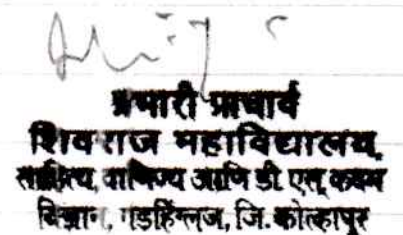 प्रभारी प्राचार्य
शिवराज महाविद्यालय,
साहित्य, वाणिज्य आणि डी.एस्.कदम
विज्ञान, गडहिंग्लज, जि. कोल्हापूर